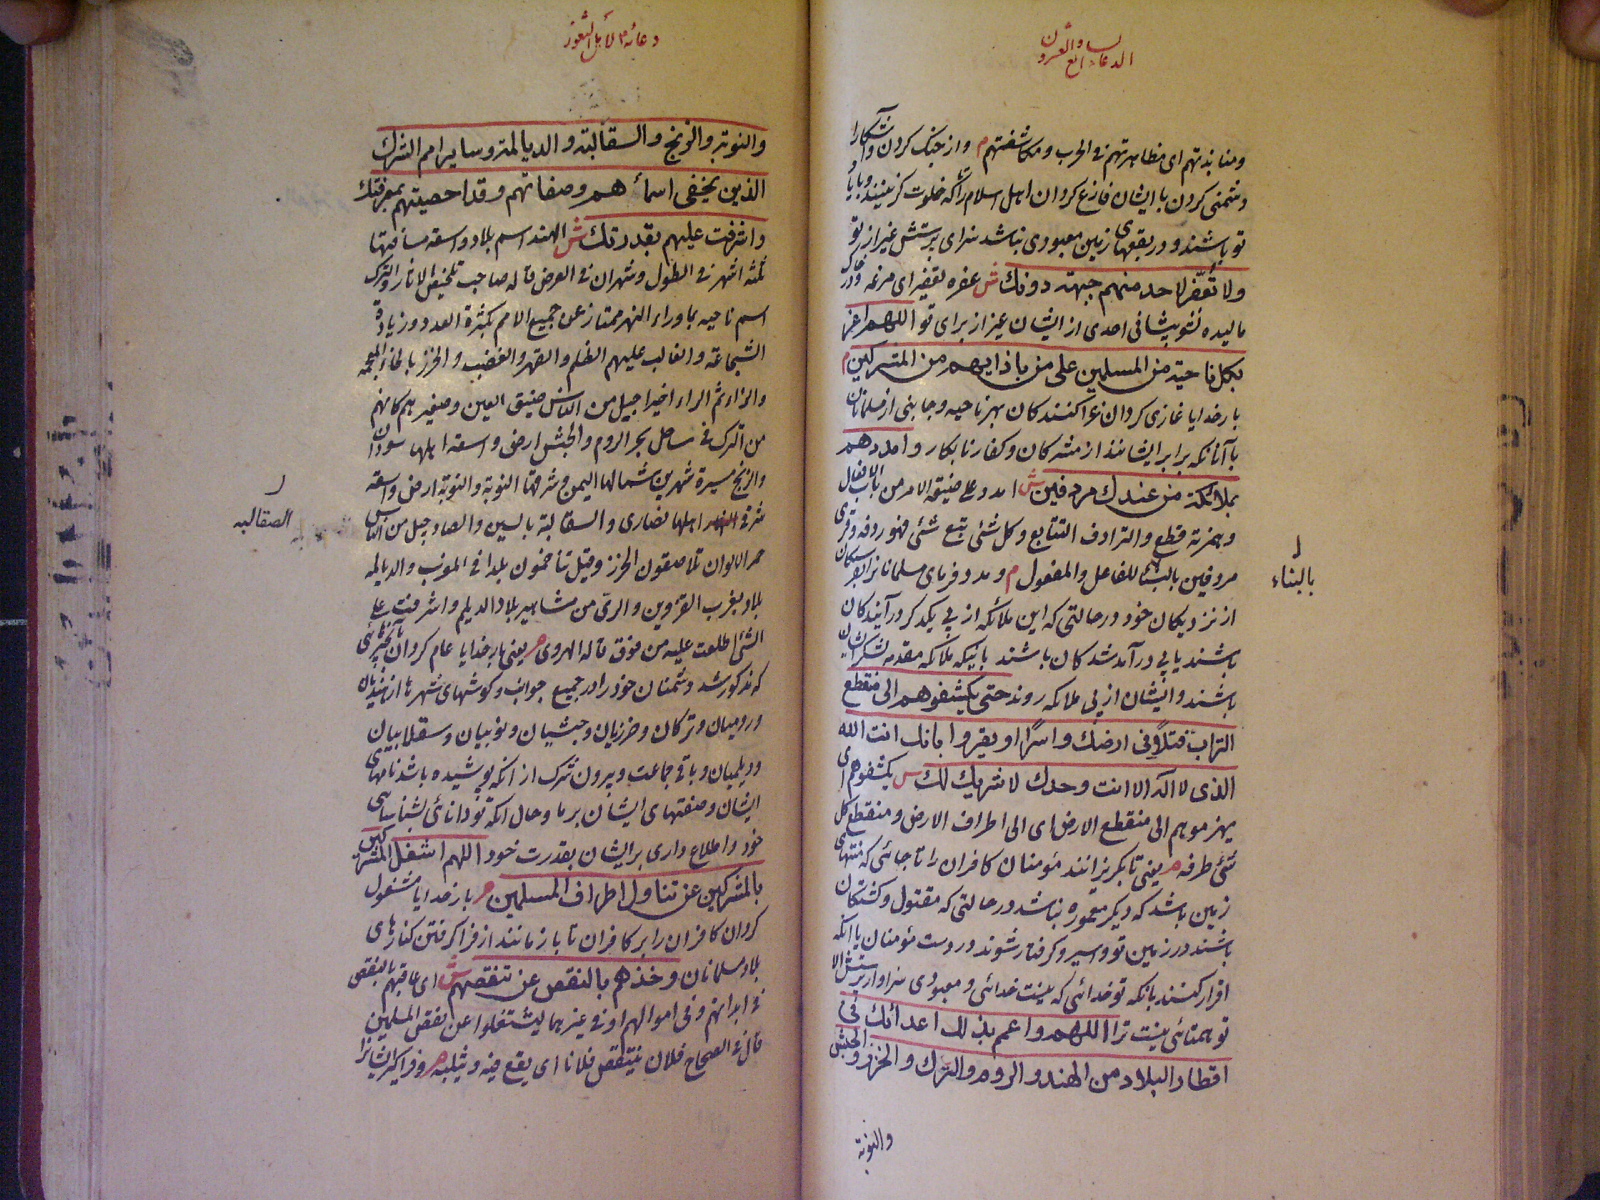 الدعاء السابع والعشرون
ومنابذتهم ای مظاهرتهم فی الحرب ومکاشفتهم م واز جنک کردن آشکارا
ودشمنی کردن با ایشان فارغ کردان اهل اسلام را که خلوت کزینند وبا یاد
تو باشند ودر بقعهای زمین معبودی نباشد سزای پرستش غیر از تو
ولا تعفر لاحد منهم جبهة دونك ش عفره تعفیرا ی مرغه ودر خاک
مالیده نشود پیشانی احدی از ایشان غیر از برای تو اللهم اغز
بکل ناحیة من المسلمین علی من بازائهم من المشرکین م
بار خدایا غازی کردان وغزا کننده کان بهر ناحیه وجانبی از مسلمانان
با آنانکه برابر ایشانند از مشرکان وکفار نابکار وامددهم
بملائکة من عندك مردفین ش امدد علی صیغة الامر من باب الافعال
وبهمزة قطع والترادف التتابع وکل شئ تبع شئ فهو ردفه وقری
مردفین بالبناء للفاعل والمفعول م ومدد فرمای مسلمانان را بفرشتکان
از نزدیکان خود در حالتی که این ملائکه از پی یکدیکر در آینده کان
باشند یا پی در آمد شد کان باشند بآنیکه ملائکه مقدمه لشکر ایشان
باشند وایشان از پی ملائکه روند حتی یکشفوهم الی منقطع
التراب قتلا فی ارضك واسرا او یقروا بانك انت الله
الذی لا اله الا انت وحدك لا شریك لك س یکشفوهم ای
یهزموهم الی منقطع الارض ای الی اطراف الارض ومنقطع کل
شئ طرفه م یعنی تا بکریزانند مؤمنان کافران را تا جائی که منتهای
زمین باشد که دیکر معموره نباشد در حالتی که مقتول وکشتکان
باشند در زمین تو واسیر وکرفتار شوند در دست مؤمنان یا انکه
اقرار کنند بانکه تو خدائی که نیست خدائی ومعبودی سزاوار پرستش الا
تو همتائی نیست ترا اللهم واعمم بذلك اعدائك فی
اقطار البلاد من الهند والروم والترك والخزر والحبش
والنوبة
بالبناء
دعائه م لاهل الثغور
والنوبة والزنج والسقالبة والدیالمة وسایر امم الشرك
الذین یخفی اسمائهم وصفاتهم وقد احصیتهم بمعرفتك
واشرفت علیهم بقدرتك ش الهند اسم بلاد واسعة مسافتها
ثلثة اشهر فی الطول وشهران فی العرض قاله صاحب تلخیص الاثار والترك
اسم ناحیه بماوراء النهر ممتاز عن جمیع الامم بکثرة العدد وزیادة
الشجاعة والغالب علیهم الظلم والقهر والغضب والخزر بالخاء المعجمة
والزاء ثم الراء اخیرا جیل من الناس ضیق العین وصغیر هم کانهم
من الترك فی ساحل بحر الروم والحبش ارض واسعة اهلها سودان
والزنج مسیرة شهرین شمالها الیمن وشرقها النوبة والنوبة ارض واسعة
شرقی اهلها نصاری والسقالبة بالسین والصاد جیل من الناس
حمر الالوان تلاصقون الخزز وقیل تتاخمون بلدا فی المغرب والدیالمه
بلاد بقرب القزوین والری من مشاهیر بلاد الدیلم واشرفت علی
الشئ اطلعت علیه من فوق قاله الهروی م یعنی بار خدایا عام کردان بآنچیزی
که مذکور شد دشمنان خود را در جمیع جوانب وکوشهای شهرها از هندیان
ورومیان وترکان وخزریان وحبشیان ونوبیان وسقلابیان
ودیلمیان وباقی جماعت وپیرون شرك از آنکه پوشیده باشد نامهای
ایشان وصفتهای ایشان بر ما وحال انکه تو دانائی بشناسائی
خود واطلاع داری بر ایشان بقدرت خود اللهم اشغل المشرکین
بالمشرکین عن تناول اطراف المسلمین م بار خدایا مشغول
کردان کافران را بر کافران تا باز مانند از فرا کرفتن کنارهای
بلاد مسلمانان وخذهم بالنقص عن تنقصهم ش ای عاقبهم بالنقص
فی ابدانهم وفی اموالهم او فی غیرهما لیشتغلوا عن نقص المسلمین
قال فی الصحاح فلان ینتقص فلانا ای یقع فیه ویثلبه م وفراکیر ایشانرا
الصقالبه